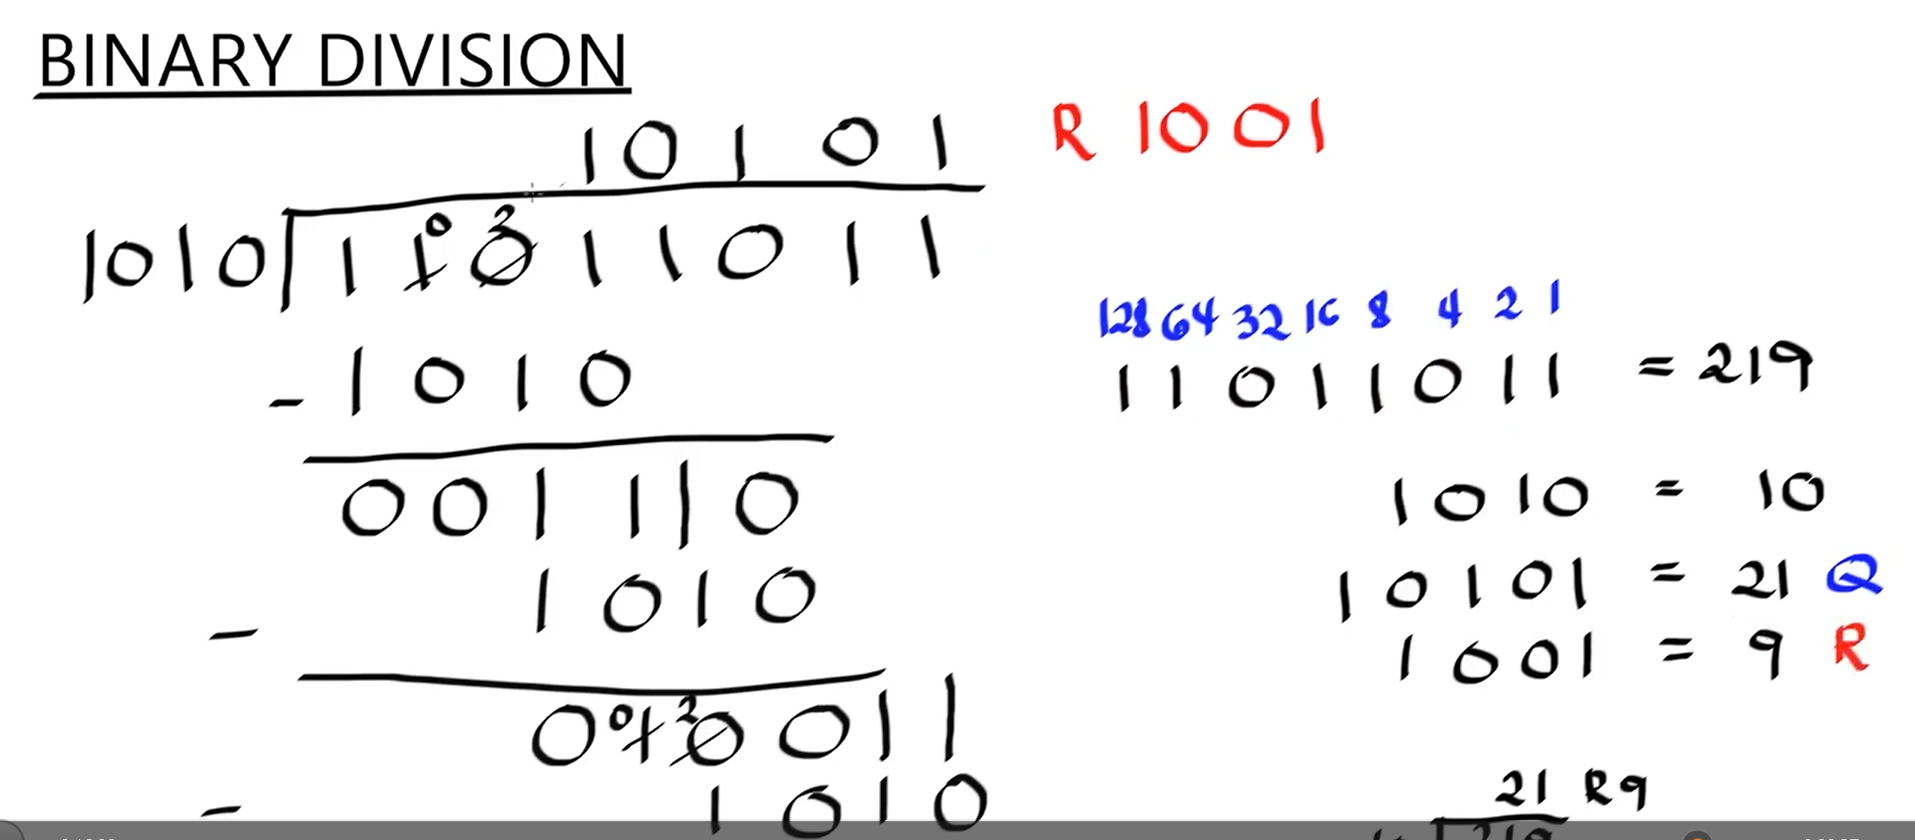 BINARY DIVISION
10101 R 1001
0 2
1010 11011011
- 1010
001110
- 1010
0 2
010011
- 1010
128 64 32 16 8 4 2 1
11011011 = 219
1010 = 10
10101 = 21 Q
1001 = 9 R
21 R9